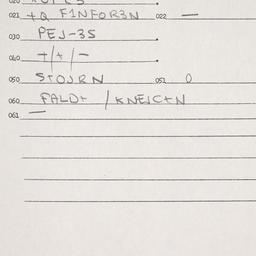 021 +Q F1NFOR3N 022 —
030 PEJ-3S
040 +/+/-
050 STOJRN 051 0
060 FALD+ /KNEJC+N
061 —